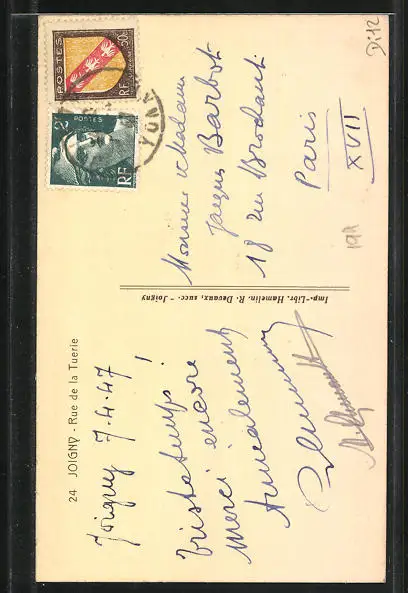 24 JOIGNY - Rue de la Tuerie
Joigny 7-4-47
Triste temps !
Merci encore
Amicalement
Imp.-Libr. Hamelin. R. Decaux, succ. - Joigny
Monsieur & Madame
Jacques Barbot
18 rue Brochant
Paris
XVII
POSTES
RF
50c
2F
POSTES
RF
YONNE
Di12